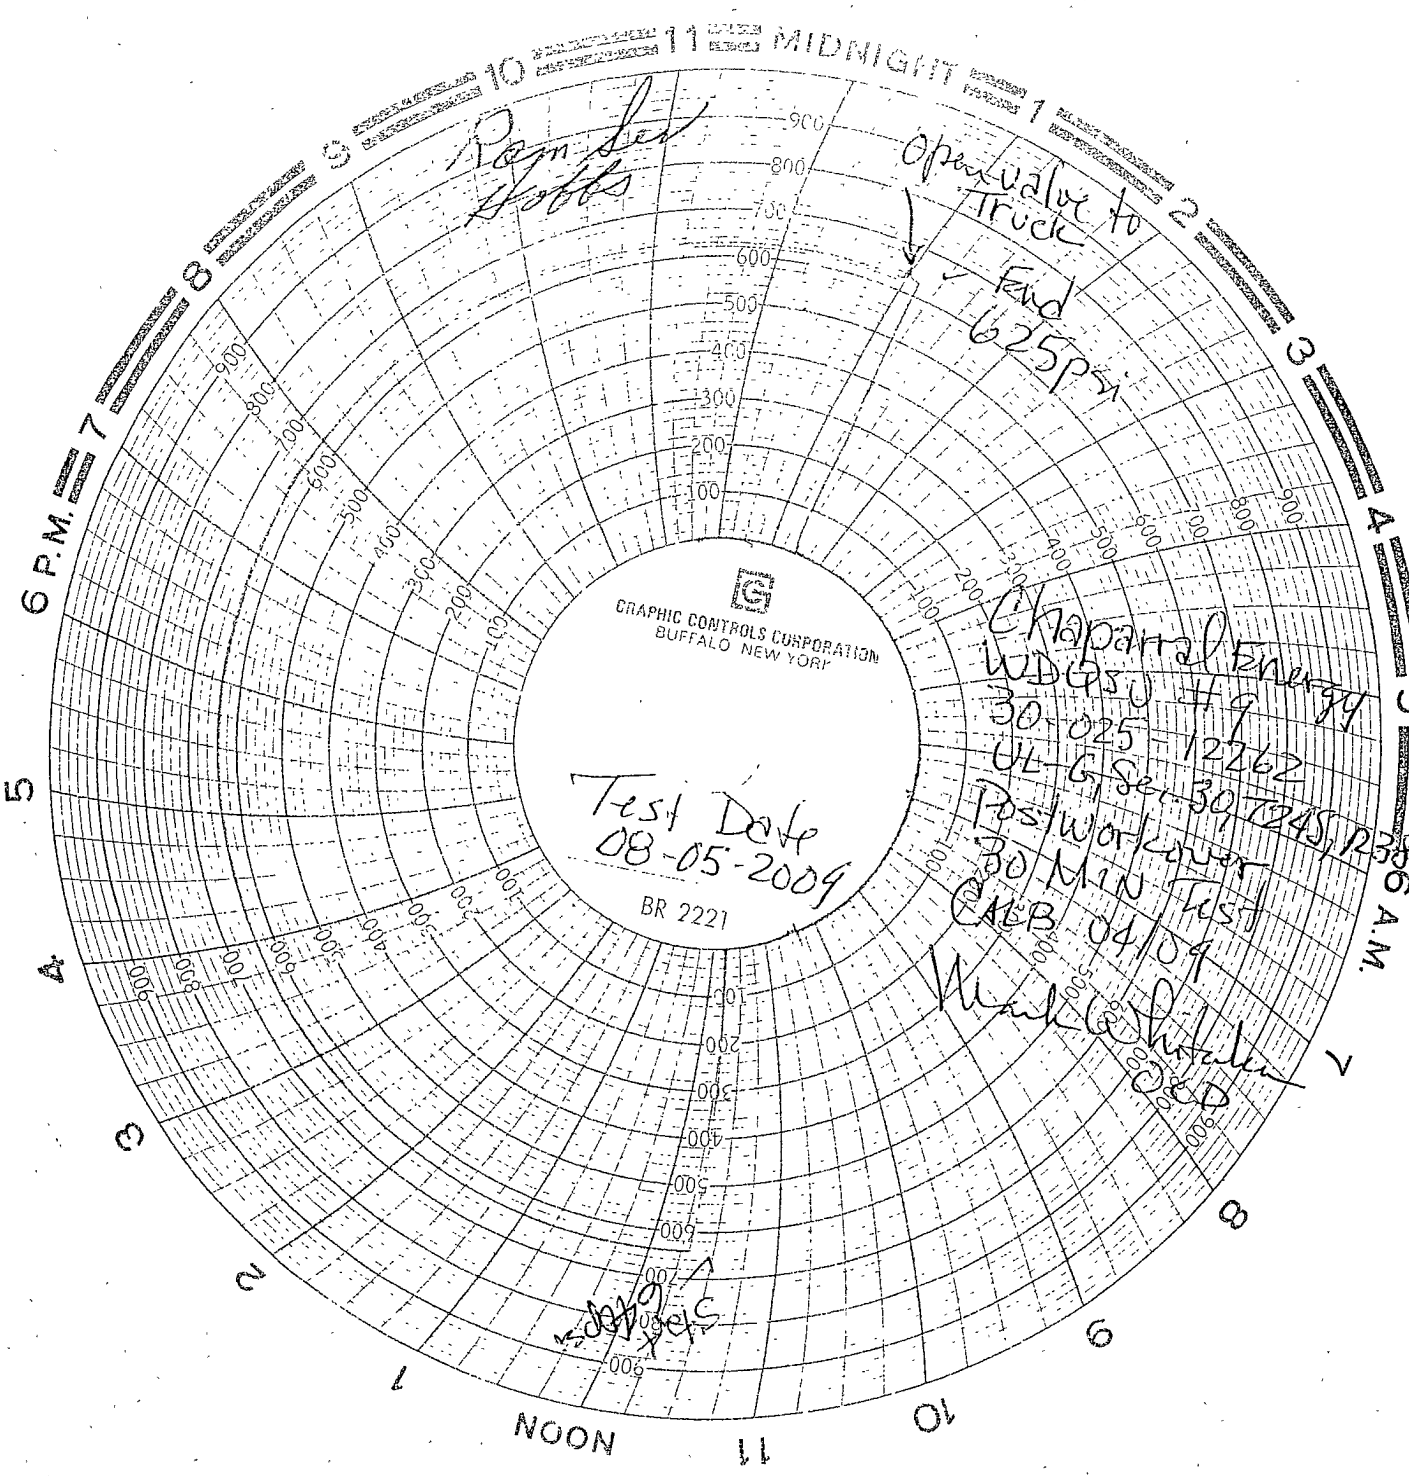 MIDNIGHT
1
2
3
4
6 A.M.
7
8
9
10
11
NOON
1
2
3
4
5
6 P.M.
7
8
9
10
11
Hobbs
Open valve to
Truck
End
625psi
900
800
700
600
500
400
300
200
100
GRAPHIC CONTROLS CORPORATION
BUFFALO NEW YORK
Test Date
08-05-2009
BR 2221
Chaparral Energy
30-025-12262
UL-G, Sec 30, T24S,
Post Workover
30 MIN Test
CALB 04/09
Mark Whitaker
Start
100
200
300
400
500
600
700
800
900